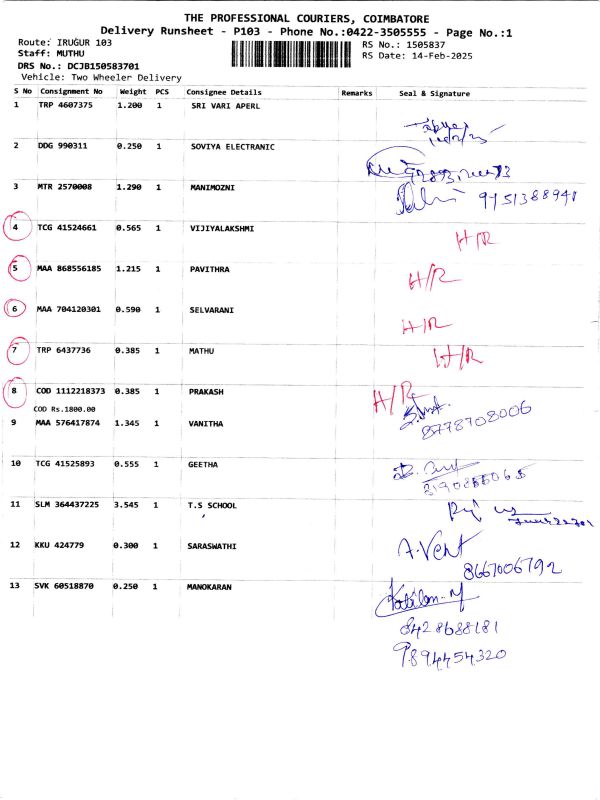 THE PROFESSIONAL COURIERS, COIMBATORE
Delivery Runsheet - P103 - Phone No.:0422-3505555 - Page No.:1
Route: IRUGUR 103
RS No.: 1505837
Staff: MUTHU
RS Date: 14-Feb-2025
DRS No.: DCJB150583701
Vehicle: Two Wheeler Delivery
S No Consignment No Weight PCS Consignee Details Remarks Seal & Signature
1 TRP 4607375 1.200 1 SRI VARI APERL
2 DDG 990311 0.250 1 SOVIYA ELECTRANIC
3 MTR 2570008 1.290 1 MANIMOZNI
9751388941
4 TCG 41524661 0.565 1 VIJIYALAKSHMI H/R
5 MAA 868556185 1.215 1 PAVITHRA H/R
6 MAA 704120301 0.590 1 SELVARANI H/R
7 TRP 6437736 0.385 1 MATHU H/R
8 COD 1112218373 0.385 1 PRAKASH H/R
COD Rs.1800.00
9 MAA 576417874 1.345 1 VANITHA 8778708006
10 TCG 41525893 0.555 1 GEETHA
11 SLM 364437225 3.545 1 T.S SCHOOL
12 KKU 424779 0.300 1 SARASWATHI A.Vent
8667006792
13 SVK 60518870 0.250 1 MANOKARAN
8428688181
9894454320